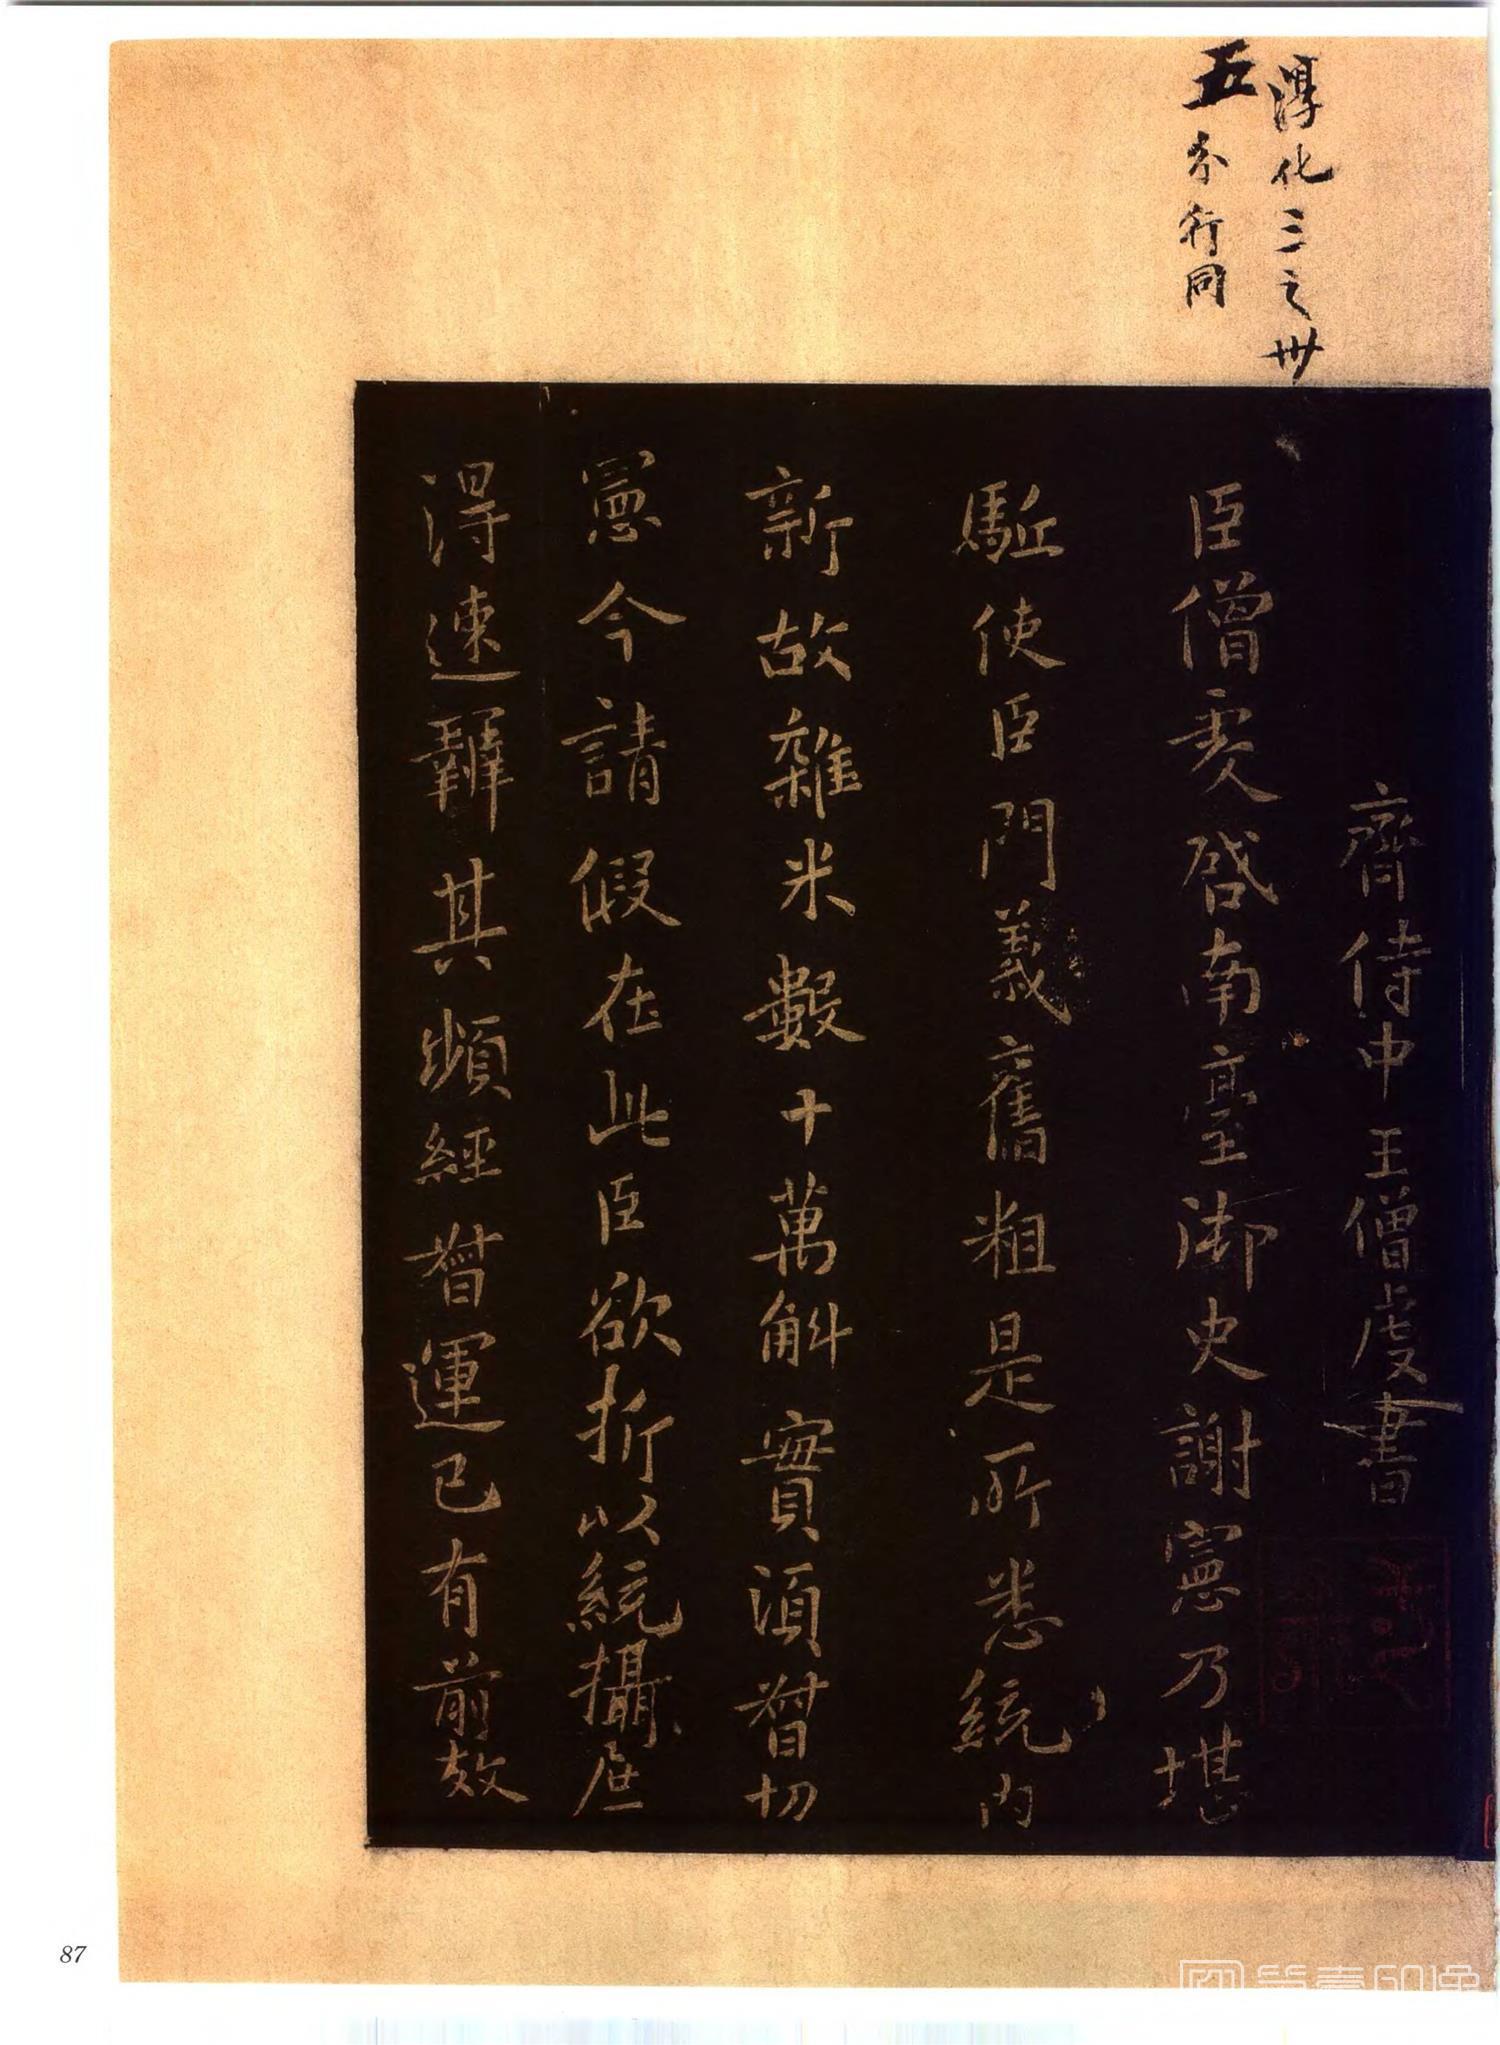 淳化三之卅
五 分行同
齊侍中王僧虔書
臣僧虔啓南臺御史謝憲乃堪
驅使臣門義舊粗是所悉統內
新故雜米數十萬斛實須督切
憲今請假在此臣欲折以統攝庶
得速辦其頻經督運已有前效
87